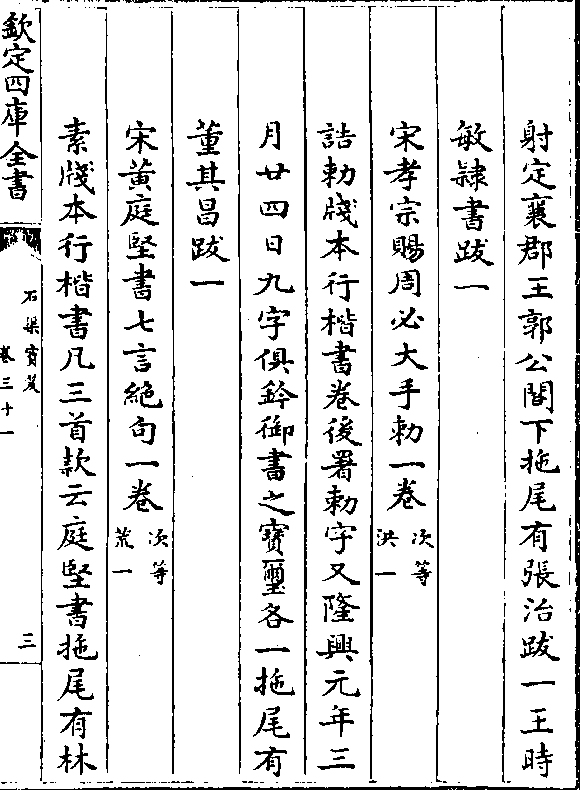 射定襄郡王郭公閣下拖尾有張治跋一王時
敏隸書跋一
宋孝宗賜周必大手勅一卷次等洪一
誥勅牋本行楷書卷後署勅字又隆興元年三
月廿四日九字俱鈐御書之寶璽各一拖尾有
董其昌跋一
宋黃庭堅書七言絶句一卷次等荒一
素牋本行楷書凡三首款云庭堅書拖尾有林
欽定四庫全書
石渠寶笈
卷三十一
三